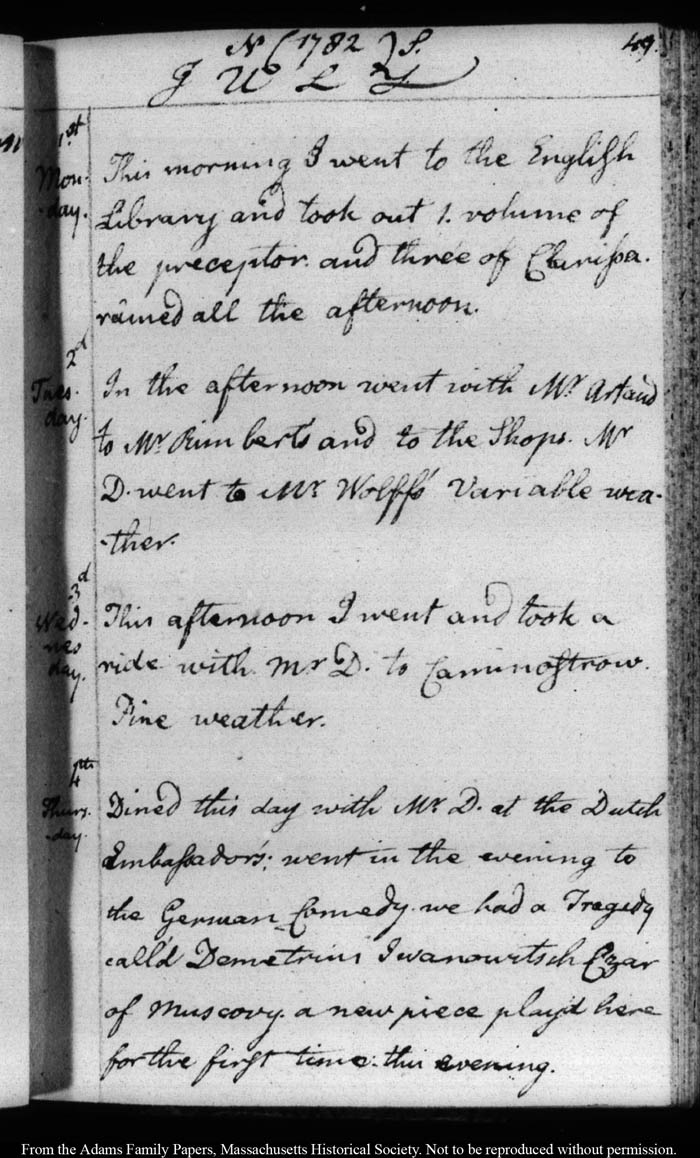 N (1782) S. 49.
JULY
1st
Mon-
-day.
This morning I went to the Engliſh
Library and took out 1. volume of
the preceptor. and three of Clariſsa.
rained all the afternoon.
2d
Tues-
day.
In the afternoon went with Mr Artaud
to Mr Rimberts and to the Shops. Mr
D. went to Mr Wolffs Variable wea-
-ther.
3d
Wed-
nes
day.
This afternoon I went and took a
ride with Mr D. to Caminoſtrow.
Fine weather.
4th
Thurs-
-day.
Dined this day with Mr D. at the Dutch
Embaſsador's; went in the evening to
the German Comedy. we had a Tragedy
call'd Demetrius Iwanowitsch Czar
of Muscovy. a new piece play'd here
for the firſt time. this evening.
From the Adams Family Papers, Massachusetts Historical Society. Not to be reproduced without permission.